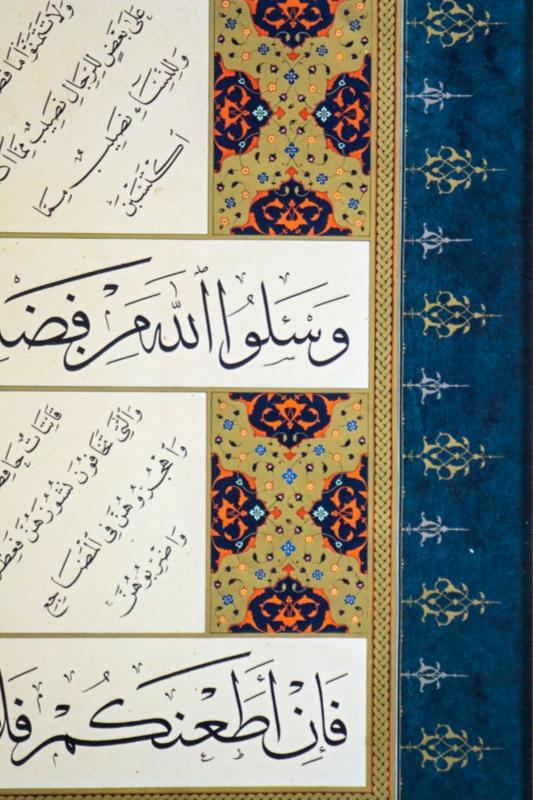 وَلَا تَتَمَنَّوْا مَا فَضَّ
عَلَىٰ بَعْضٍ لِلرِّجَالِ نَصِيبٌ مِمَّا اك
وَلِلنِّسَاءِ نَصِيبٌ مِمَّا
اكْتَسَبْنَ
وَسْـَٔلُوا اللّٰهَ مِنْ فَضْلِ
قَانِتَاتٌ حَافِظَ
وَالّٰتِي تَخَافُونَ نُشُوزَهُنَّ فَعِظُو
وَاهْجُرُوهُنَّ فِي الْمَضَاجِعِ
وَاضْرِبُوهُنَّ
فَإِنْ أَطَعْنَكُمْ فَلَا